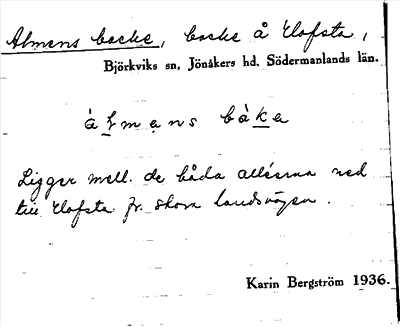 Almens backe, backe å Hofsta,
Björkviks sn, Jönåkers hd. Södermanlands län.
àl̠mǝns bàka
Ligger mell. de båda alléerna ned
till Hofsta fr. stora landsvägen.
Karin Bergström 1936.